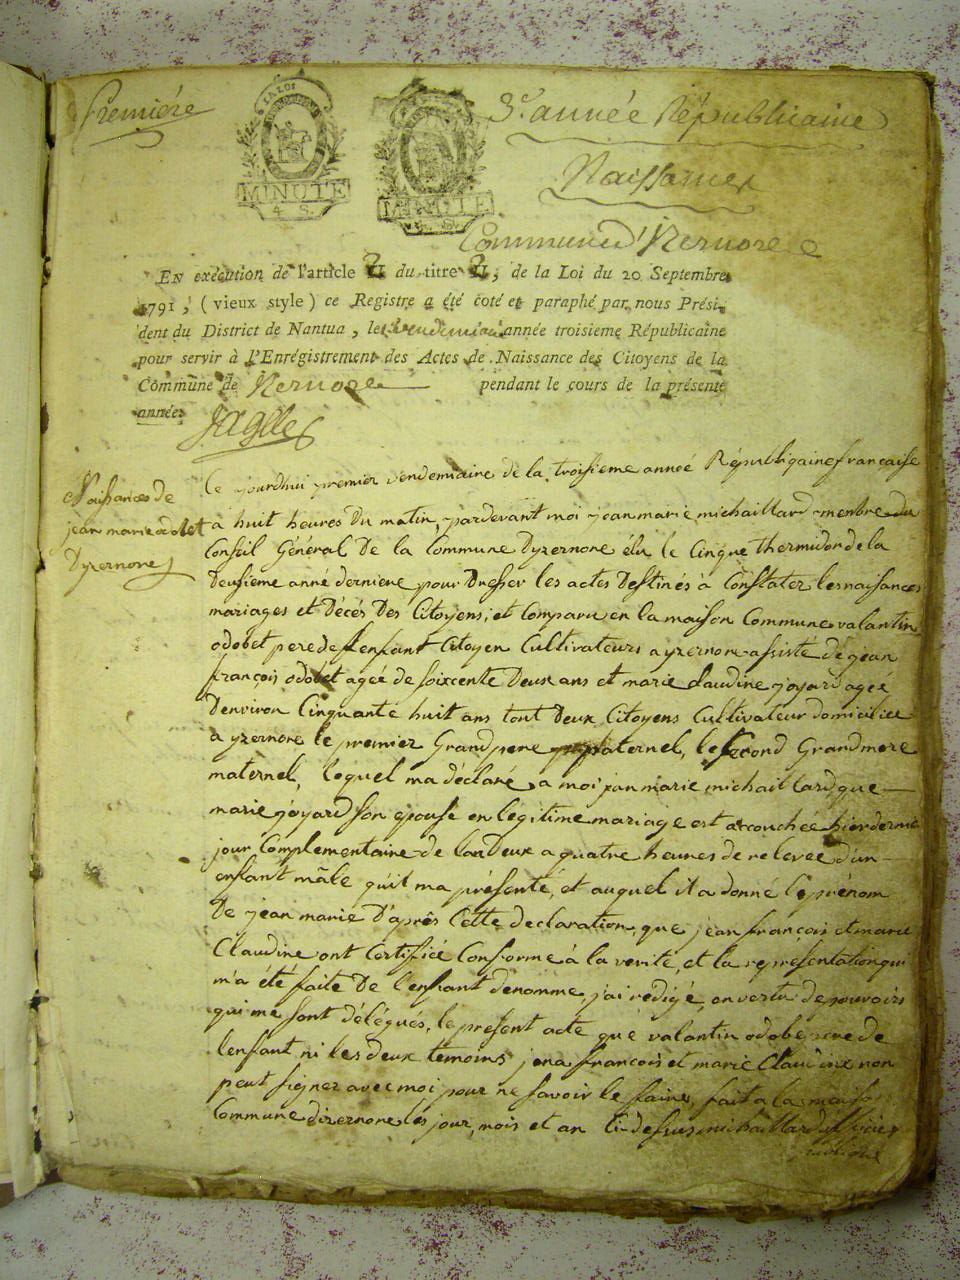 Premiére
LA LOI
MINUTE
4 S.
MINUTE
4 S.
3e. année Républicaine
Naissances
Commune d'Izernore
EN exécution de l'article II du titre II, de la Loi du 20 Septembre
1791, (vieux style) ce Registre a été coté et paraphé par nous Prési-
dent du District de Nantua, le vendemiaire année troisieme Républicaine
pour servir à l'Enrégistrement des Actes de Naissance des Citoyens de la
Commune de Izernore pendant le cours de la présente
année.
Naissances de
jean marie odobet
Dyzernore
Ce jourdhui premier vendemiaire de la troisieme anneé Républiqaine française
a huit heures Du matin, pardevant moi jean marie michaillard membre du
Conseil Général De la Commune Dyzernore élu le Cinque thermidor de la
Deusieme anné derniere pour Dresser les actes Destinés à Constater les naisances
mariages et Décés Des Citoyens, et Comparu en la maison Commune valantin
odobet pere de l'enfant Citoyen Cultivateurs a yzernore assisté de jean
françois odobet ageé de soixcente Deux ans et marie claudine joyard ageé
Denviron Cinquante huit ans tout Deux Citoyens Cultivateur domiciliée
a yzernore le premier Grand pere paternel, le second Grand mere
maternel, lequel ma déclaré a moi jean marie michaillard que
marie joyard son epouse en légitime mariage est accouchée hier dernie
jour Complementaire de lan Deux a quatre heures de relevée d'un
enfant mâle qu'il ma présenté, et auquel il a donné le prénom
De jean marie D'après Cette declaration que jean françois et marie
Claudine ont Certifiée Conforme à la verité, et la représentation qui
m'a été faite De l'enfant denomme, j'ai redigé, en vertu de pouvoirs
qui me sont délégués, le present acte que valantin odobe pere de
l'enfant ni les deux temoins jena francois et marie Claudine non
peut signer avec moi pour ne savoir le faire, fait a la maiso
Commune dizernore les jour, mois et an Ci-dessus michaillard officier
publique